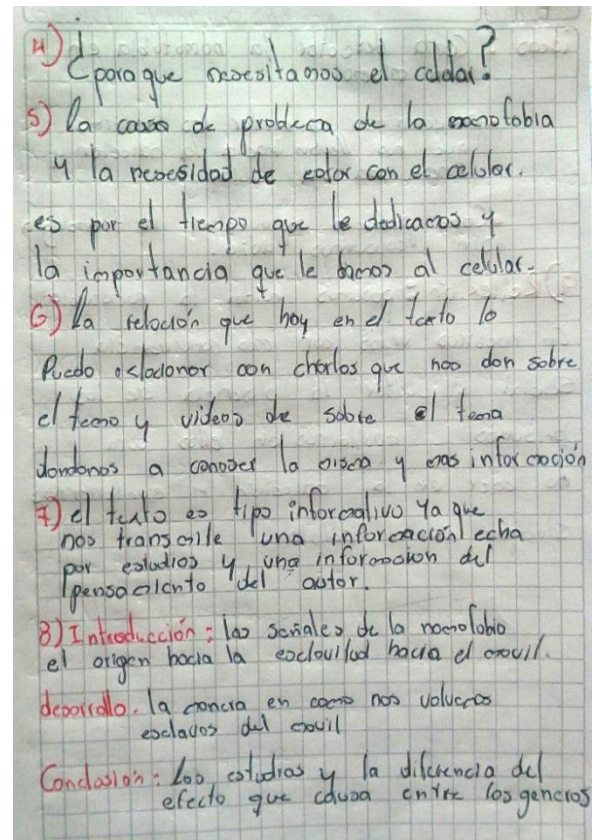 4) ¿para que necesitamos el celular?
5) la causa de problema de la nomofobia
y la necesidad de estar con el celular.
es por el tiempo que le dedicamos y
la importancia que le damos al celular.
6) la relación que hay en el texto lo
Puedo relacionar con charlas que nos dan sobre
el tema y videos de sobre el tema
dandonos a conocer la misma y mas información
7) el texto es tipo informativo ya que
nos transmite una información echa
por estudios y una información del
pensamiento del autor.
8) Introducción: las señales de la nomofobia
el origen hacia la esclavitud hacia el movil.
desarrollo. la manera en como nos volvemos
esclavos del movil
Conclusión: Los estudios y la diferencia del
efecto que causa entre los generos